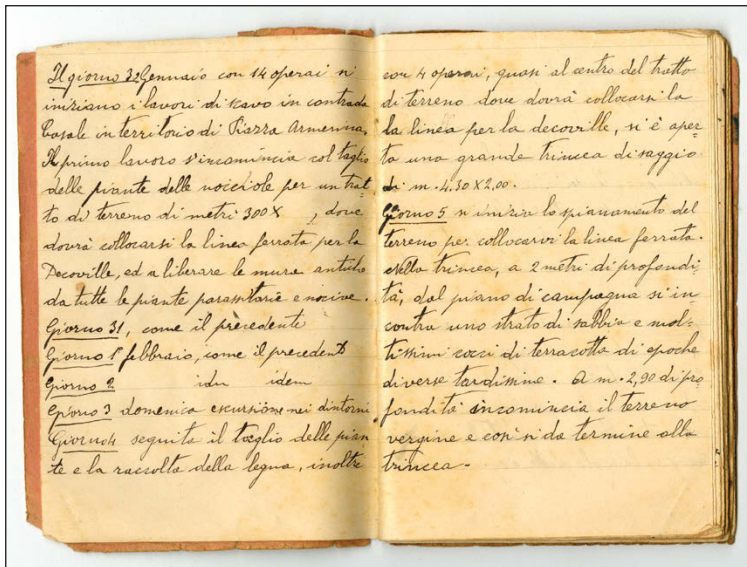 Il giorno 30 Gennaio con 14 operai si
iniziano i lavori di scavo in contrada
Casale in territorio di Piazza Armerina.
Il primo lavoro s'incomincia col taglio
delle piante delle nocciole per un trat=
to di terreno di metri 300 X , dove
dovrà collocarsi la linea ferrata per la
Decoville, ed a liberare le mura antiche
da tutte le piante parassitarie e nocive.
Giorno 31, come il precedente
Giorno 1° febbraio, come il precedente
Giorno 2 idem idem
Giorno 3 domenica escursione nei dintorni
Giorno 4 seguita il taglio delle pian
te e la raccolta della legna, inoltre
con 4 operai, quasi al centro del tratto
di terreno dove dovrà collocarsi la
la linea per la decoville, si è aper=
ta una grande trincea di saggio
di m. 4.30 X 2,00.
Giorno 5 si inizia lo spianamento del
terreno per collocarvi la linea ferrata.
Nella trincea, a 2 metri di profondi
tà, dal piano di campagna si in=
contra uno strato di sabbia e mol=
tissimi cocci di terracotta di epoche
diverse tardissime. A m. 2,90 di pro
fondità incomincia il terreno
vergine e così si da termine alla
trincea.